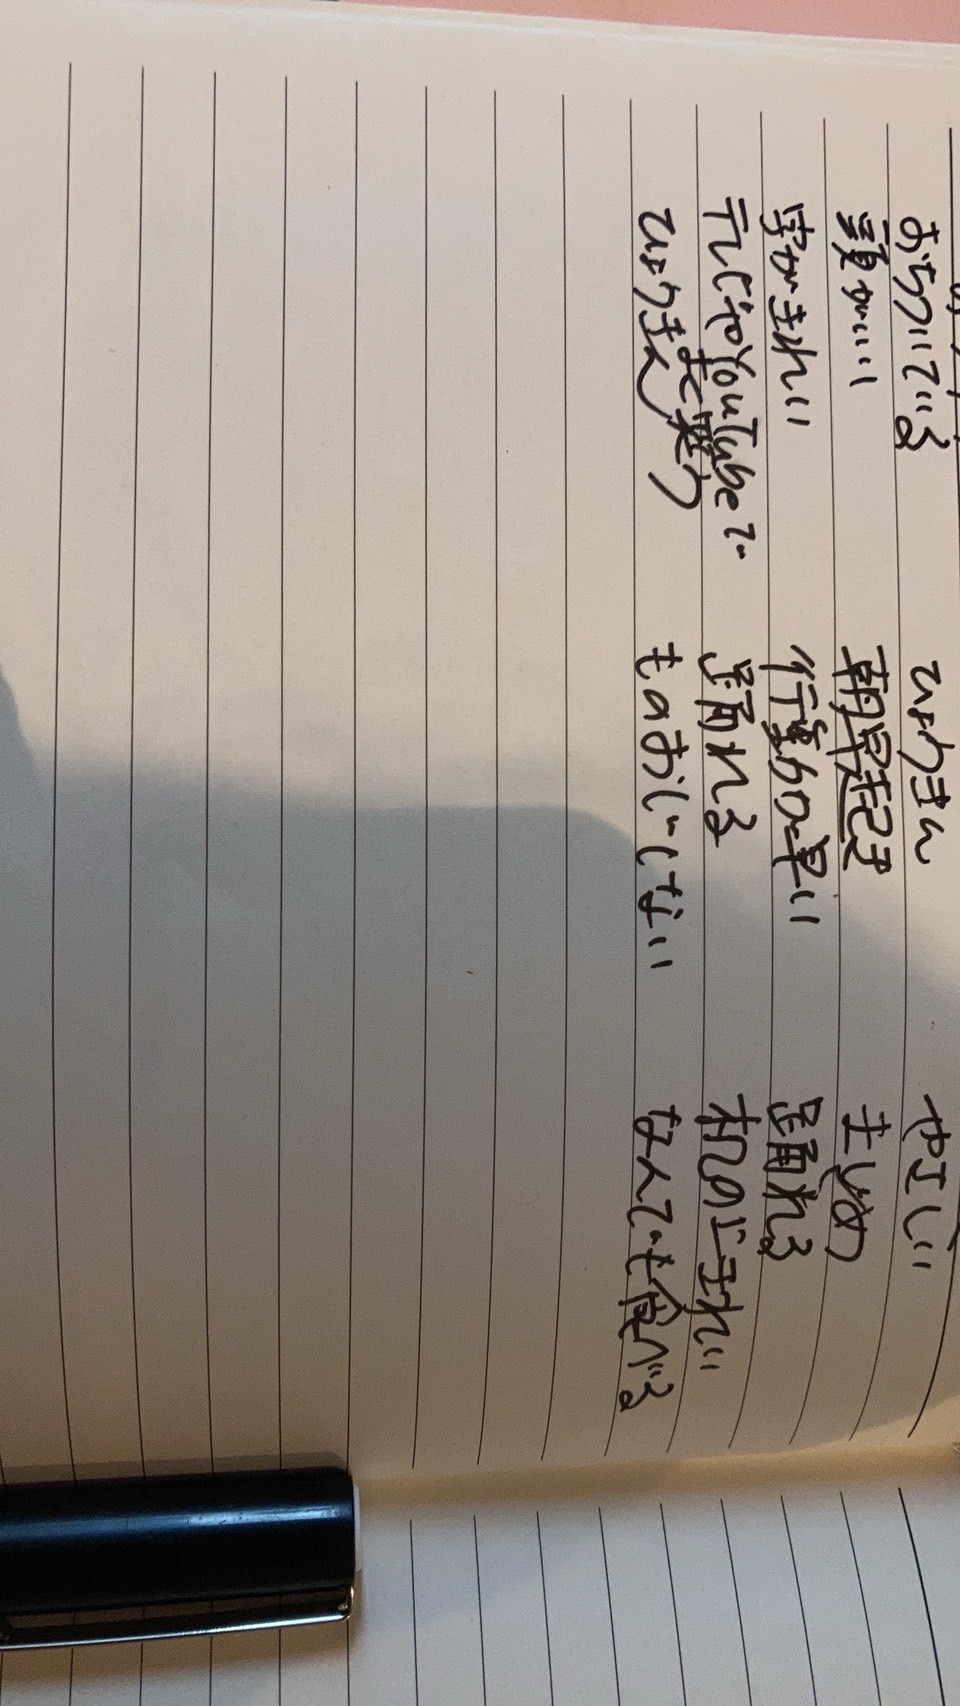 おちついている ひょうきん やさしい
頭がいい 朝早起き まじめ
字がきれい 行動が早い 踊れる
テレビやYouTubeで 踊れる 机の上きれい
よく笑う
ひょうきん ものおじしない なんでも食べる